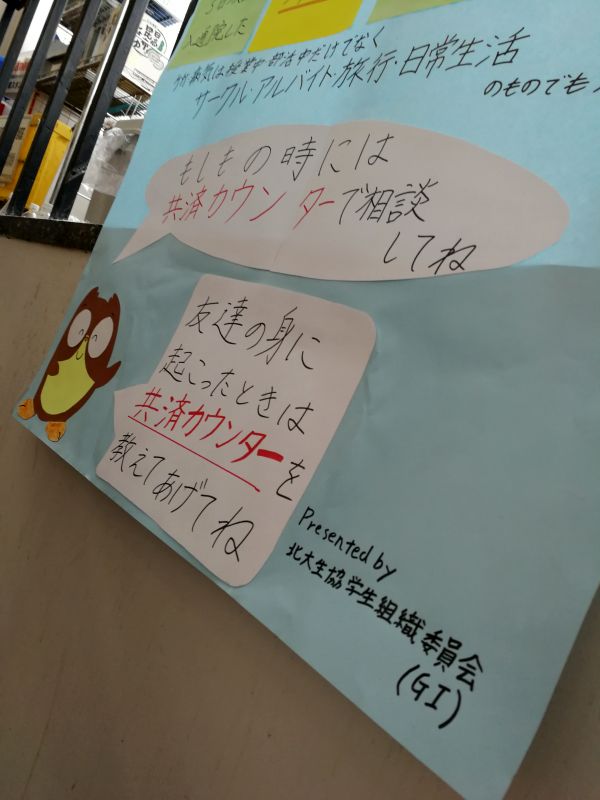 入通院した
ケガ・病気は授業中・部活中だけでなく
サークル・アルバイト・旅行・日常生活
のものでも
もしもの時には
共済カウンターで相談
してね
友達の身に
起こったときは
共済カウンターを
教えてあげてね
Presented by
北大生協学生組織委員会
(GI)